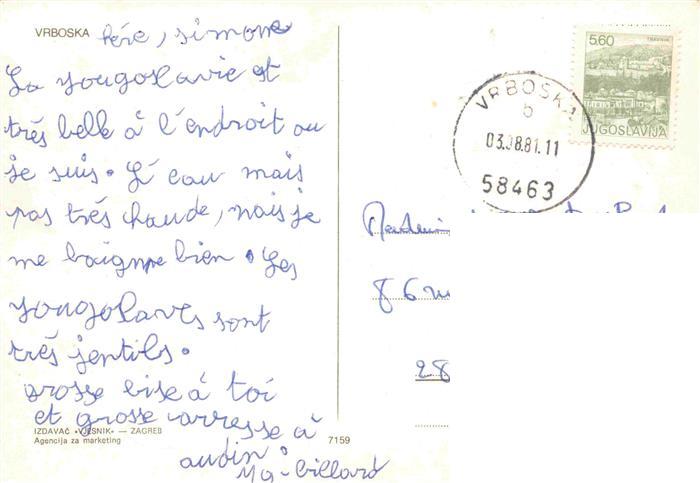 VRBOSKA
simone
La yougoslavie est
très belle à l'endroit ou
je suis. L'eau mais
pas très chaude, mais je
me baigne bien. Les
yougolaves sont
très jentils.
grosse bise à toi
et grosse carresse à
audin.
IZDAVAČ «VJESNIK» — ZAGREB
Agencija za marketing
7159
5.60
TRAVNIK
JUGOSLAVIJA
VRBOSKA
b
03.08.81.11
58463
86
28